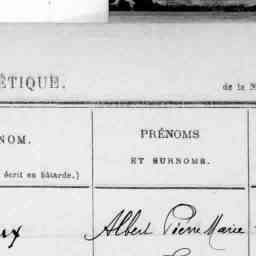 ÉTIQUE.
de la N
NOM.
PRÉNOMS
ET SURNOMS.
écrit en bâtarde.)
ux Albert Pierre Marie